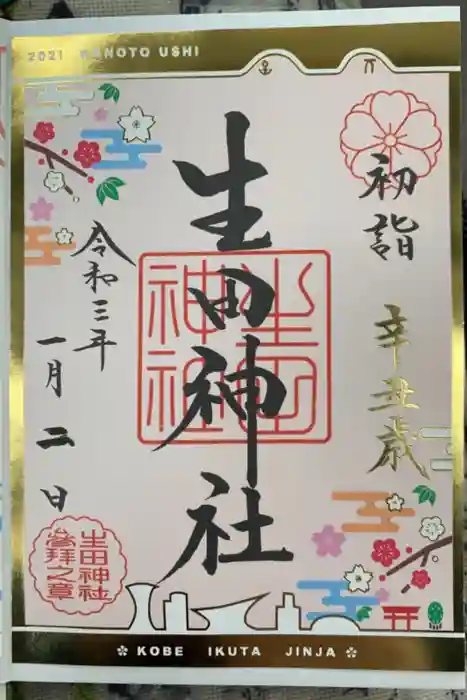 2021 KANOTO USHI
初詣
辛丑歳
生田神社
生田神社
令和三年
一月二日
生田神社
参拝之章
KOBE IKUTA JINJA